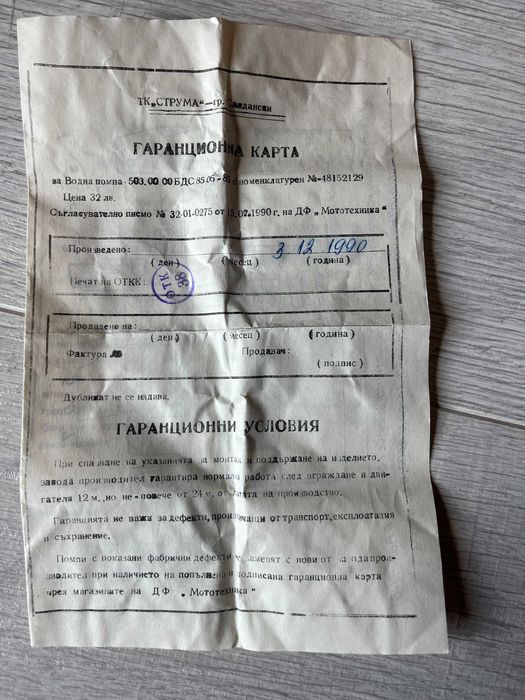 ТК„СТРУМА"—гр. Сандански
ГАРАНЦИОННА КАРТА
за Водна помпа-503.00 00 БДС 8506-85 с номенклатурен №-48152129
Цена 32 лв.
Съгласувателно писмо № 32-01-0275 от 15.02.1990 г. на ДФ „Мототехника"
Произведено: 3 12 1990
(ден) (месец) (година)
Печат на ОТКК:
ОТК 38
Продадено на:
(ден) (месец) (година)
Фактура № Продавач:
(подпис)
Дубликат не се издава.
ГАРАНЦИОННИ УСЛОВИЯ
При спазване на указанията за монтаж и поддържане на изделието,
завода производител гарантира нормална работа след вграждане в дви-
гателя 12 м, но не-повече от 24 м, от датата на производство.
Гаранцията не важи за дефекти, произтичащи от транспорт, експлоатазия
и съхранение.
Помпи с показани фабрични дефекти се заменят с нови от завода произ-
водител при наличието на попълнена и подписана гаранционна карта
чрез магазините на ДФ „Мототехника"